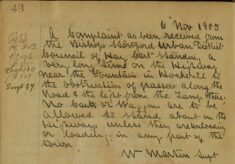 43
6 Nov 1905
A Complaint has been received from
the Bishops Stortford Urban District
Council of Hay Cart standing a
very long time on the Highway
near the Fountain in Hockerill to
the obstruction of persons along the
Road & the left from the Lamp there
No Carts or Waggons are to be
allowed to stand about on the
Highway, unless they are unloading
or loading, in any part of the
town.
Wm Martin Supt